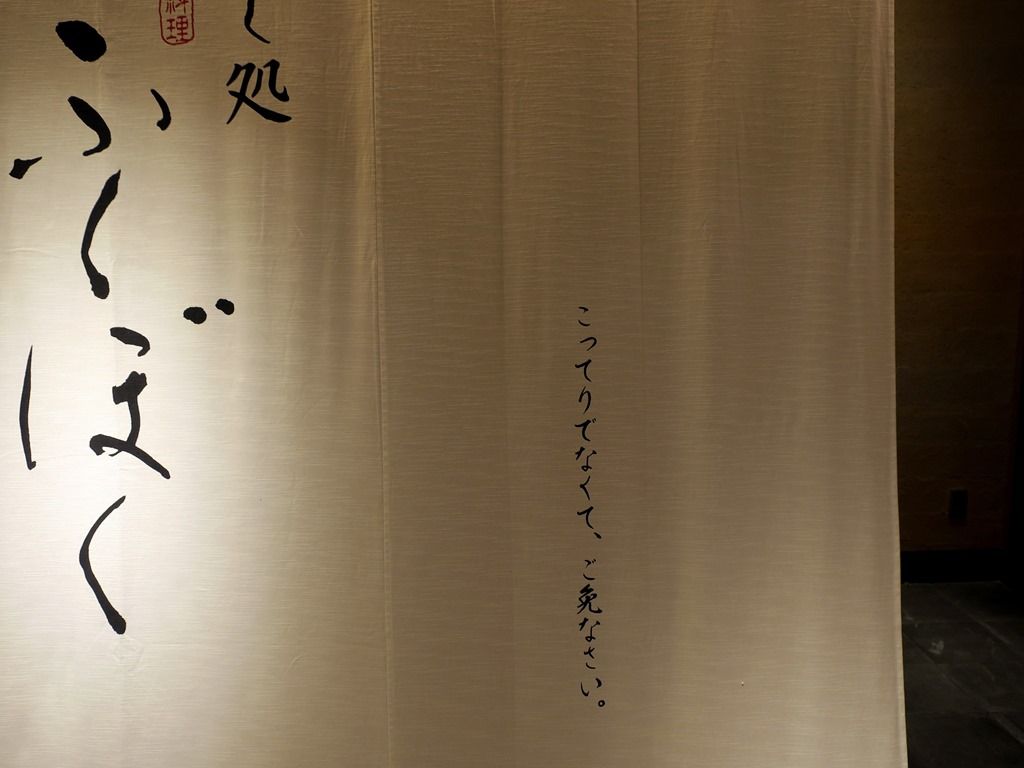 こってりでなくて、ご免なさい。
し処
料理
ふくぼく